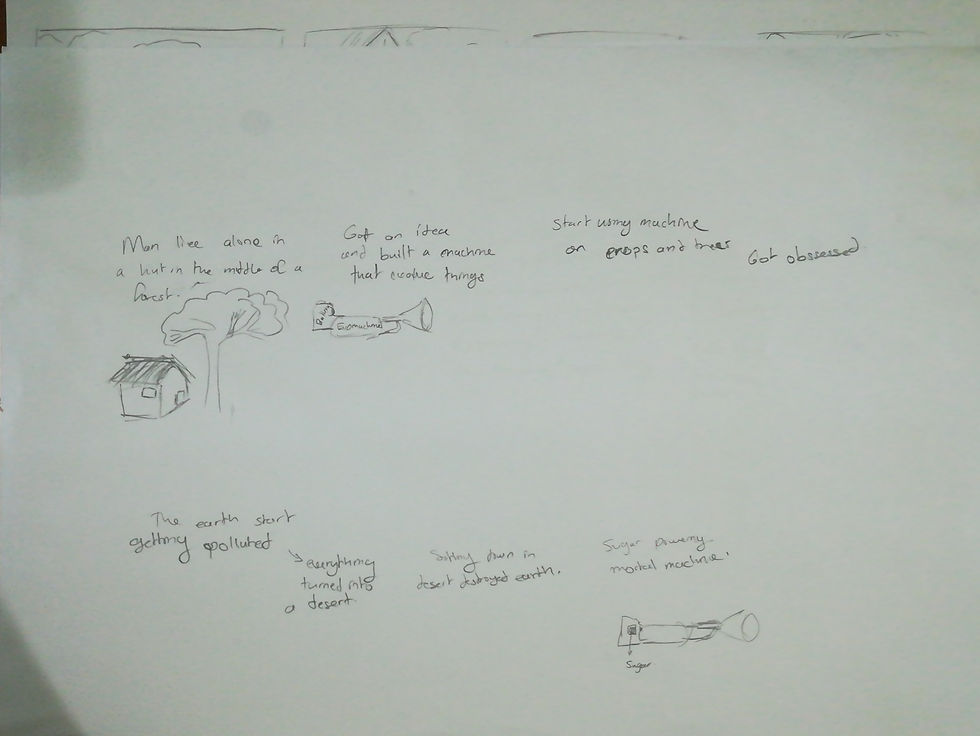 Man live alone in
a hut in the middle of a
forest.
Got an idea
and built a machine
that evolve things
Evomachine
start using machine
on crops and trees
Got obssessed
The earth start
getting polluted
everything
turned into
a desert
down in
desert destroyed earth.
Sugar
machine.
Sugar